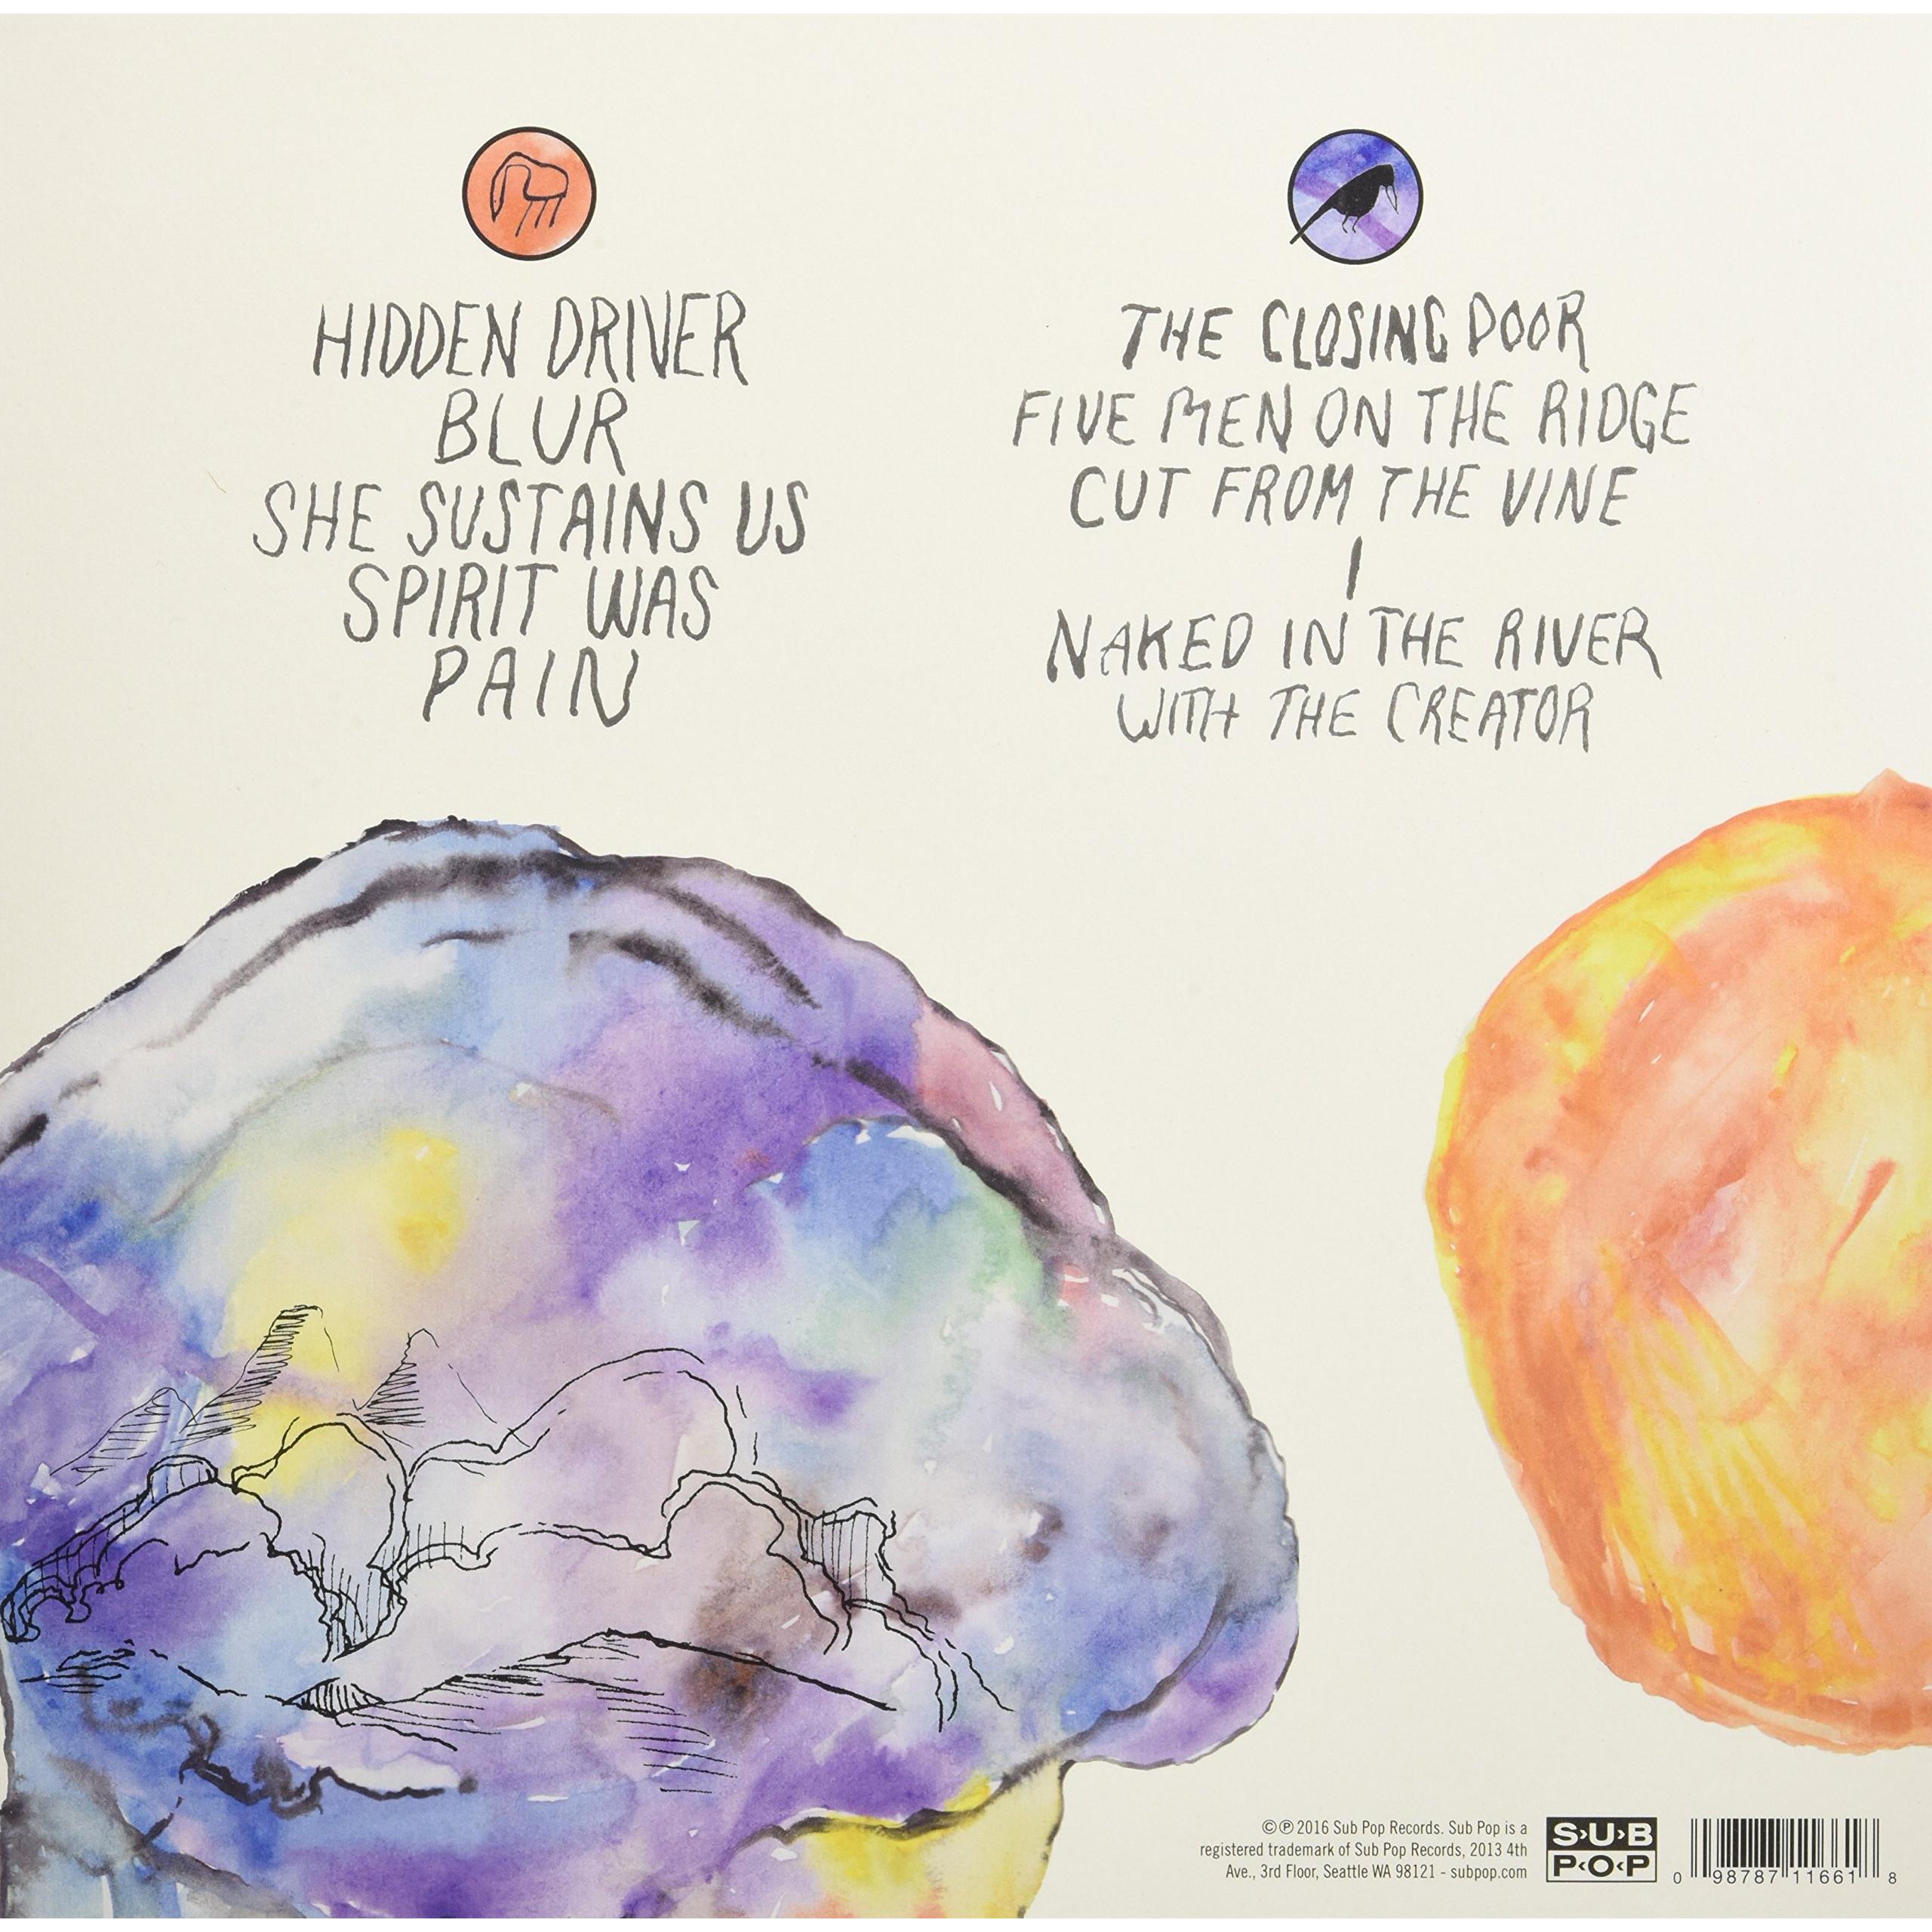 HIDDEN DRIVER
BLUR
SHE SUSTAINS US
SPIRIT WAS
PAIN
THE CLOSING DOOR
FIVE MEN ON THE RIDGE
CUT FROM THE VINE
I
NAKED IN THE RIVER
WITH THE CREATOR
©℗ 2016 Sub Pop Records. Sub Pop is a
registered trademark of Sub Pop Records, 2013 4th
Ave., 3rd Floor, Seattle WA 98121 - subpop.com
S›U›B
P‹O‹P
0 98787 11661 8